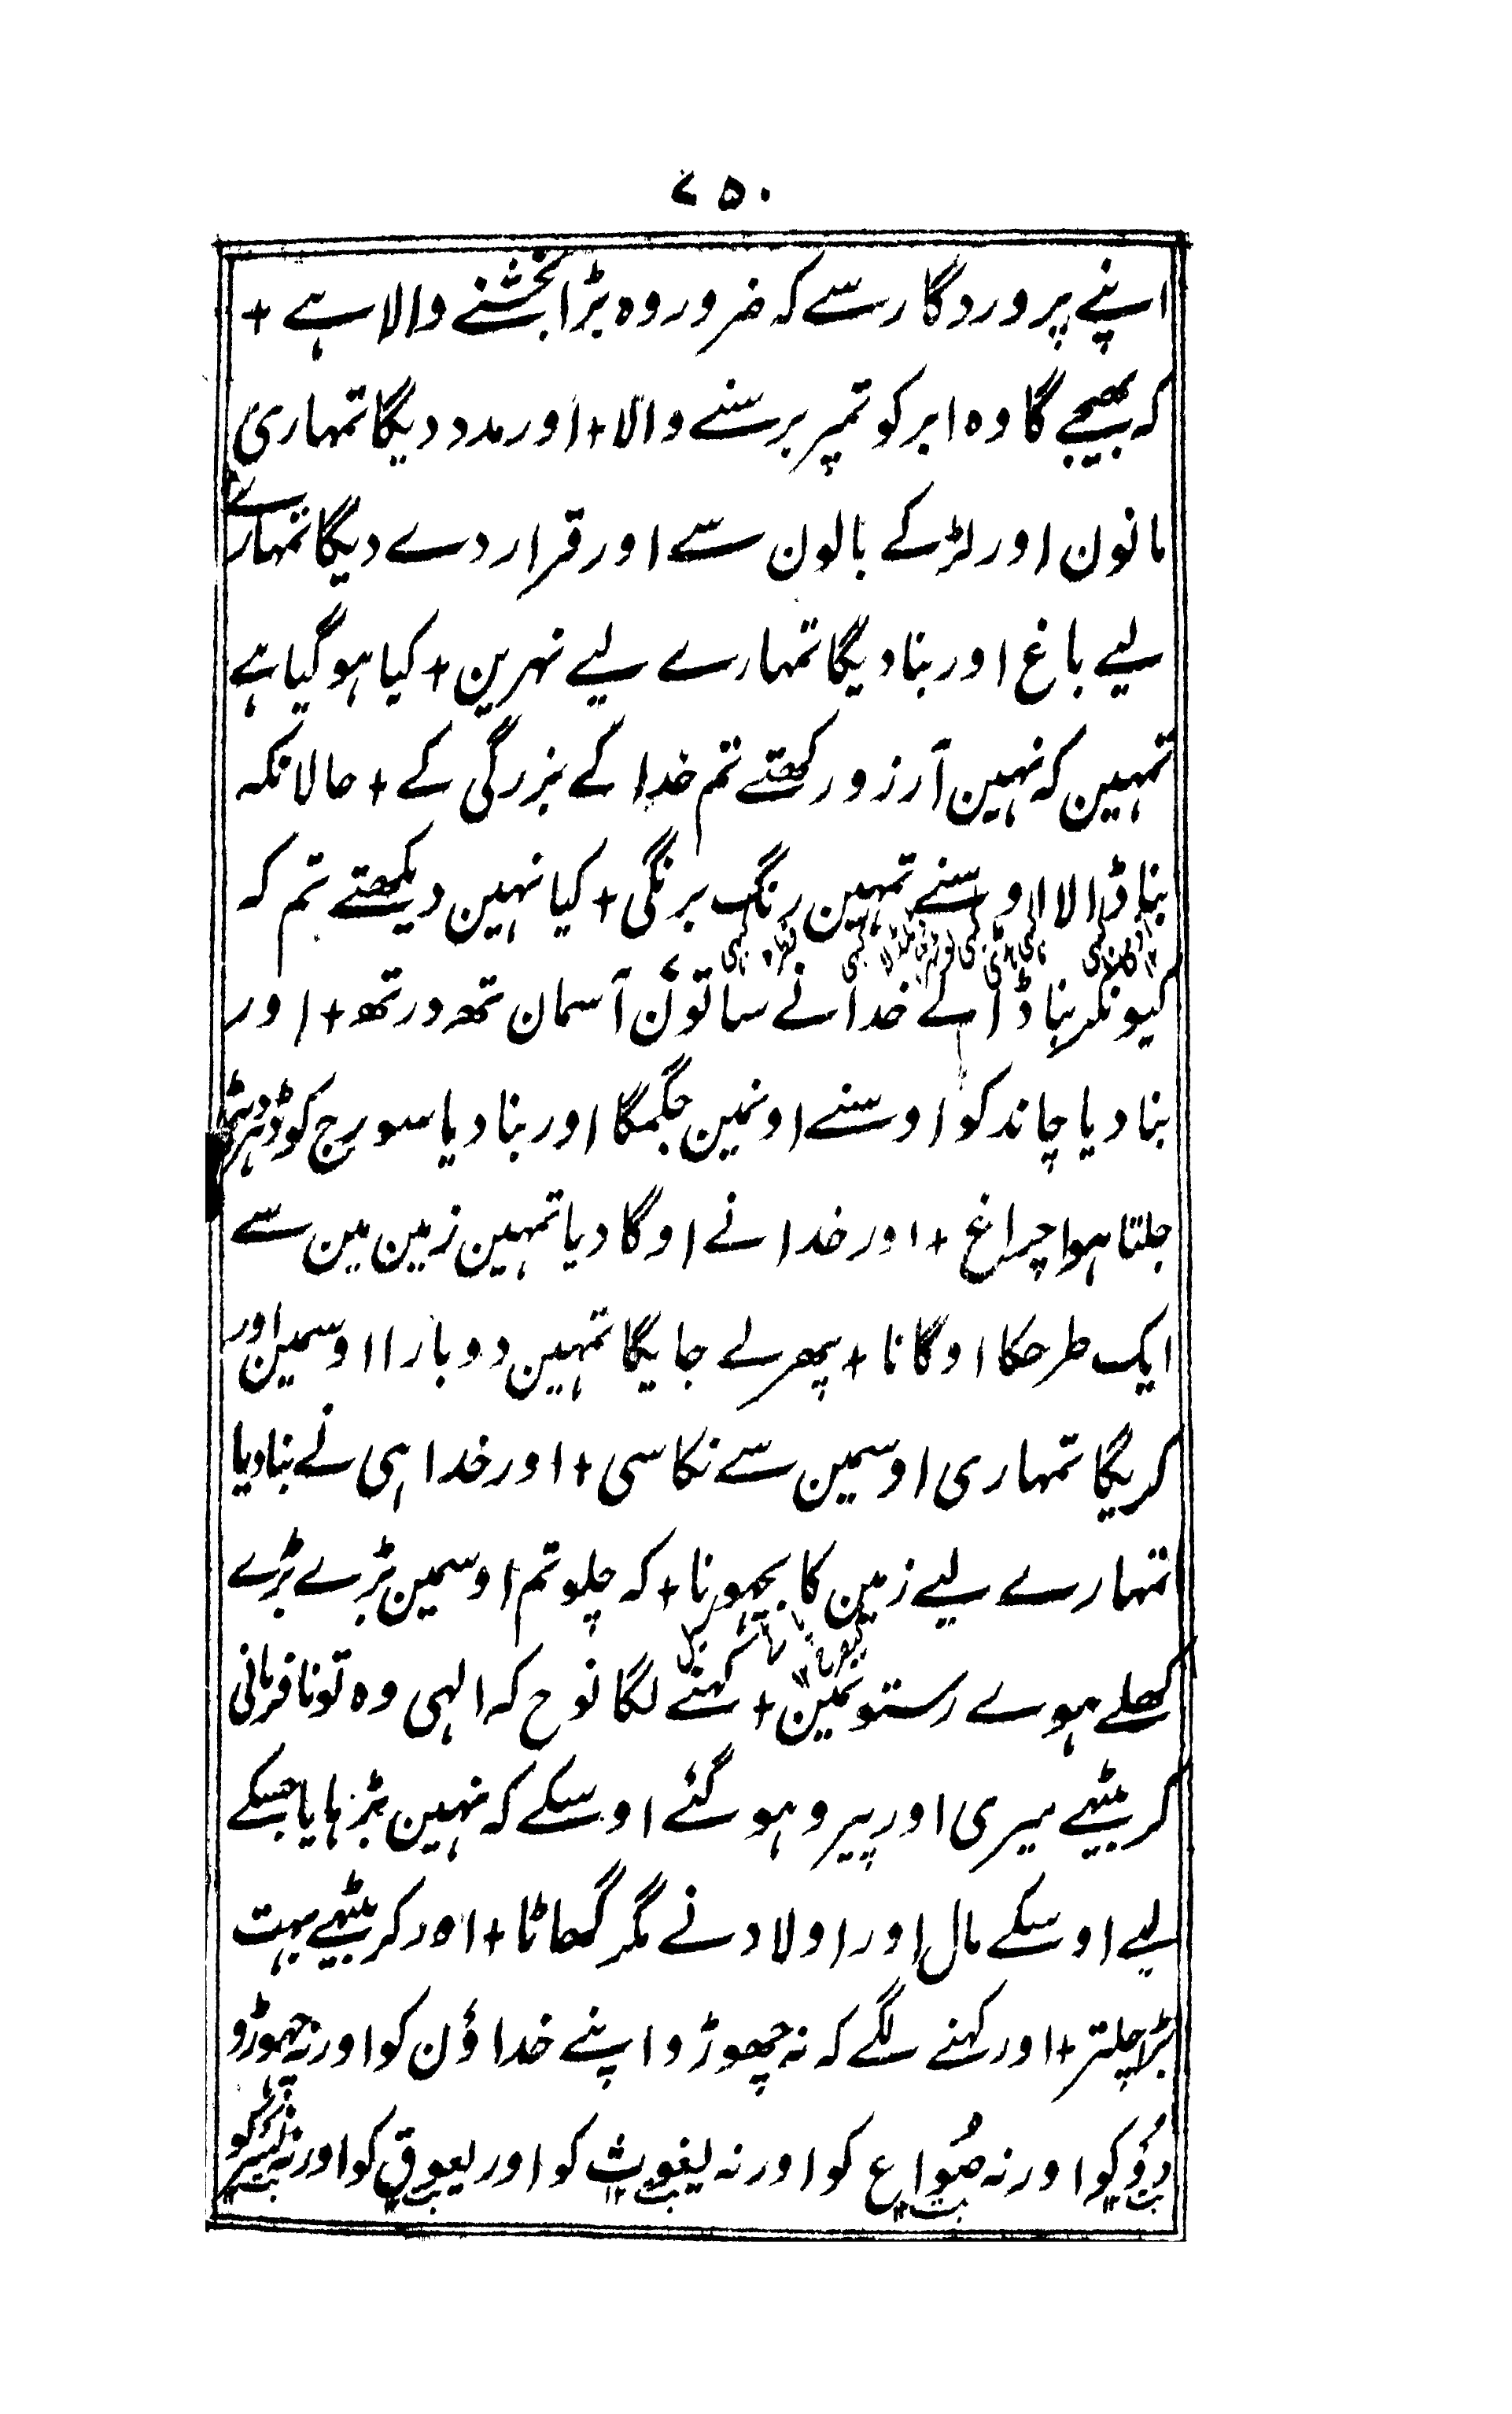 ۷۵۰
اپنے پروردگار سے کہ ضرور وہ بڑا بخشنے والا ہے +
کہ بھیجے گا وہ ابر کو تمپر برسنے والا + اور مدد دیگا تمہاری
مانون اور لڑکے بالون سے اور قرار دے دیگا تمہارے
لیے باغ اور بنا دیگا تمہارے لیے نہرین + کیا ہو گیا ہے
تمہین کہ نہین آرزو رکھتے تم خدا کے بزرگی کے + حالانکہ
بنا ڈالا اوسنے تمہین رنگ برنگی + کیا نہین دیکھتے تم کہ
کیونکر بنا ڈالے خدا نے ساتون آسمان تھ در تھ + اور
بنا دیا چاند کو اوسنے اونمین جگمگا اور بنا دیا سورج کو
جلتا ہوا چراغ + اور خدا نے اوگا دیا تمہین زمین مین سے
ایک طرحکا اوگانا + پھر لے جایگا تمہین دوبارا اوسمین اور
کریگا تمہاری اوسمین سے نکاسی + اور خدا ہی نے بنا دیا
تمہارے لیے زمین کا بچھونا + کہ چلو تم اوسمین بڑے بڑے
کھلے ہوے رستونمین + کہنے لگا نوح کہ الہی وہ تو نافرمانی
کر بیٹھے میری اور پیرو ہو گئے اوسکے کہ نہین بڑہایا جسکے
لیے اوسکے مال اور اولاد نے مگر گھاٹا + اور کر بیٹھے بہت
بڑا چلتر + اور کہنے لگے کہ نہ چھوڑو اپنے خداؤن کو اور نہ چھوڑو
وُدّ کو اور نہ صُواع کو اور نہ یغوث کو اور یعوق کو اور نہ نسر کو